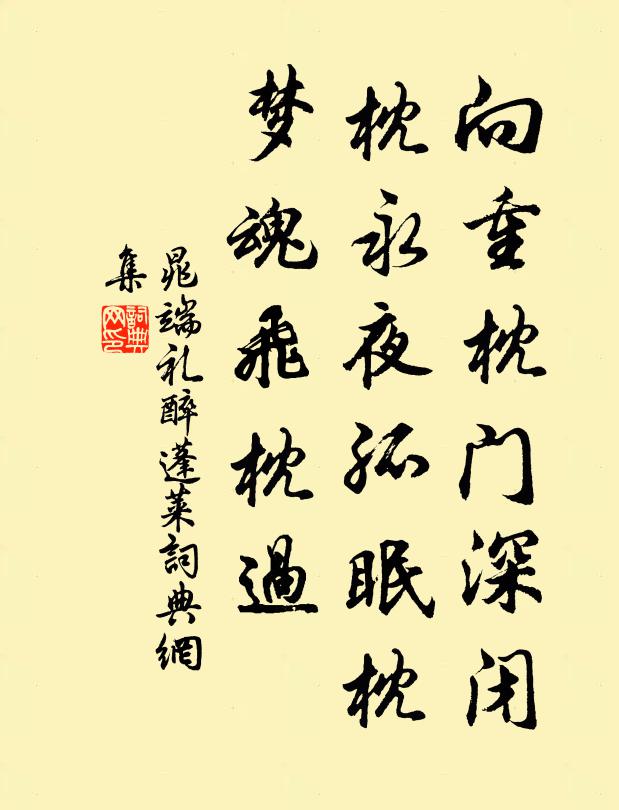 向重枕门深闭
枕永夜孤眠枕
梦魂飛枕過
晁端礼醉蓬莱詞典網
集
詞典
网印